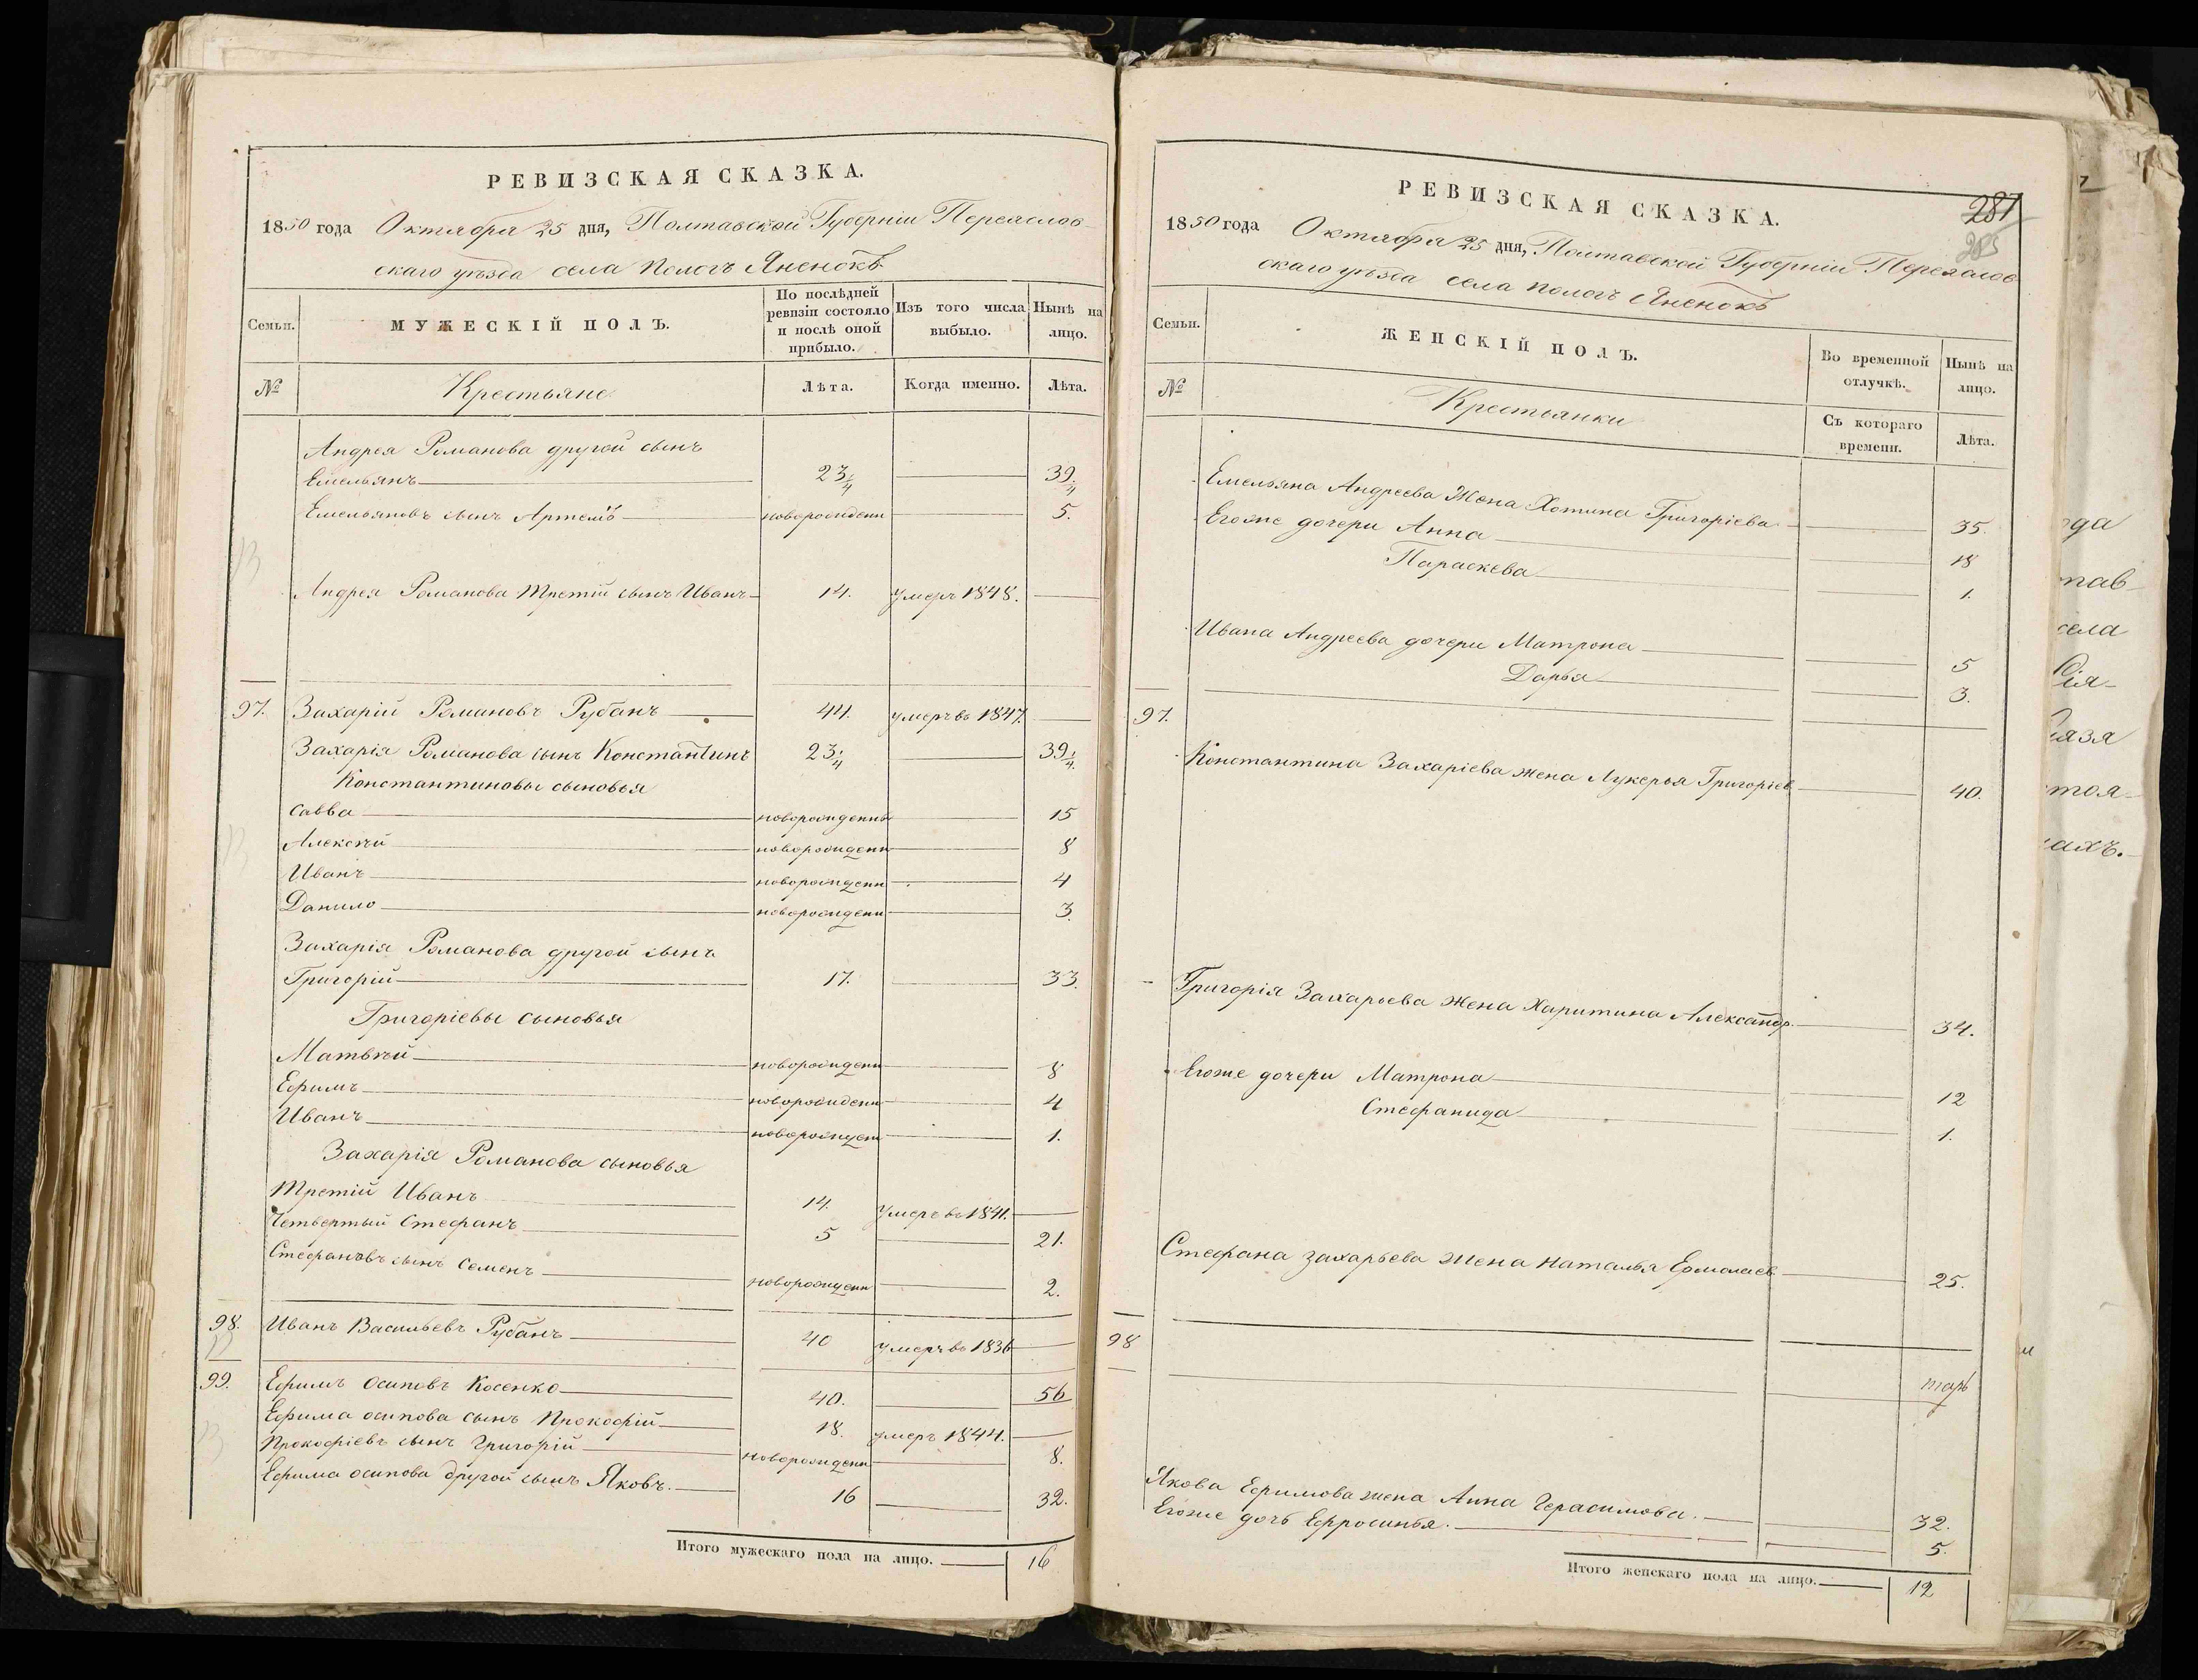 РЕВИЗСКАЯ СКАЗКА.
1850 года Октября 25 дня, Полтавской Губерніи Переяслов-
скаго уѣзда села Пологъ Яненокъ
Семьи.
МУЖЕСКІЙ ПОЛЪ.
По послѣдней ревизіи состояло и послѣ оной прибыло.
Изъ того числа выбыло.
Нынѣ на лицо.
№ Крестьяне Лѣта. Когда именно. Лѣта.
Андрея Романова другой сынъ
Емельянъ 23 1/4 39 1/4
Емельяновъ сынъ Артемъ новорожденн 5.
Андрея Романова третій сынъ Иванъ 14. умеръ 1848.
97. Захарій Романовъ Рубанъ 44. умеръ во 1847.
Захарія Романова сынъ Константинъ 23 1/4 39 1/4
Константиновы сыновья
Савва новорожденный 15
Алексѣй новорожденн 8
Иванъ новорожденн 4
Данило новорожденн 3.
Захарія Романова другой сынъ
Григорій 17. 33.
Григоріевы сыновья
Матвѣй новорожденн 8
Ефимъ новорожденн 4
Иванъ новорожден 1.
Захарія Романова сыновья
Третій Иванъ 14. умеръ во 1841.
Четвертый Стефанъ 5 21.
Стефановъ сынъ Семенъ новорожденн 2.
98. Иванъ Васильевъ Рубанъ 40 умеръ во 1836
99. Ефимъ Осиповъ Косенко 40. 56
Ефима Осипова сынъ Прокофій 18. умеръ 1844.
Прокофіевъ сынъ Григорій новорожденн 8.
Ефима Осипова другой сынъ Яковъ. 16 32.
Итого мужескаго пола на лицо. 16
РЕВИЗСКАЯ СКАЗКА.
281
285
1850 года Октября 25 дня, Полтавской Губерніи Переяслов-
скаго уѣзда села Пологъ Яненокъ
Семьи.
ЖЕНСКІЙ ПОЛЪ.
Во временной отлучкѣ.
Нынѣ на лицо.
№ Крестьянки Съ котораго времени. Лѣта.
Емельяна Андреева Жена Хотина Григоріева 35.
Егоже дочери Анна 18
Параскева 1.
Ивана Андреева дочери Матрона 5
Дарья 3.
97.
Константина Захаріева жена Лукерья Григоріев 40.
Григорія Захарьева жена Харитина Александр. 34.
Егоже дочери Матрона 12
Стефанида 1.
Стефана Захарьева жена Наталья Ермолаев 25.
98
Якова Ефимова жена Анна Герасимова. 32.
Егоже дочь Ефросинья. 5.
Итого женскаго пола на лицо. 12